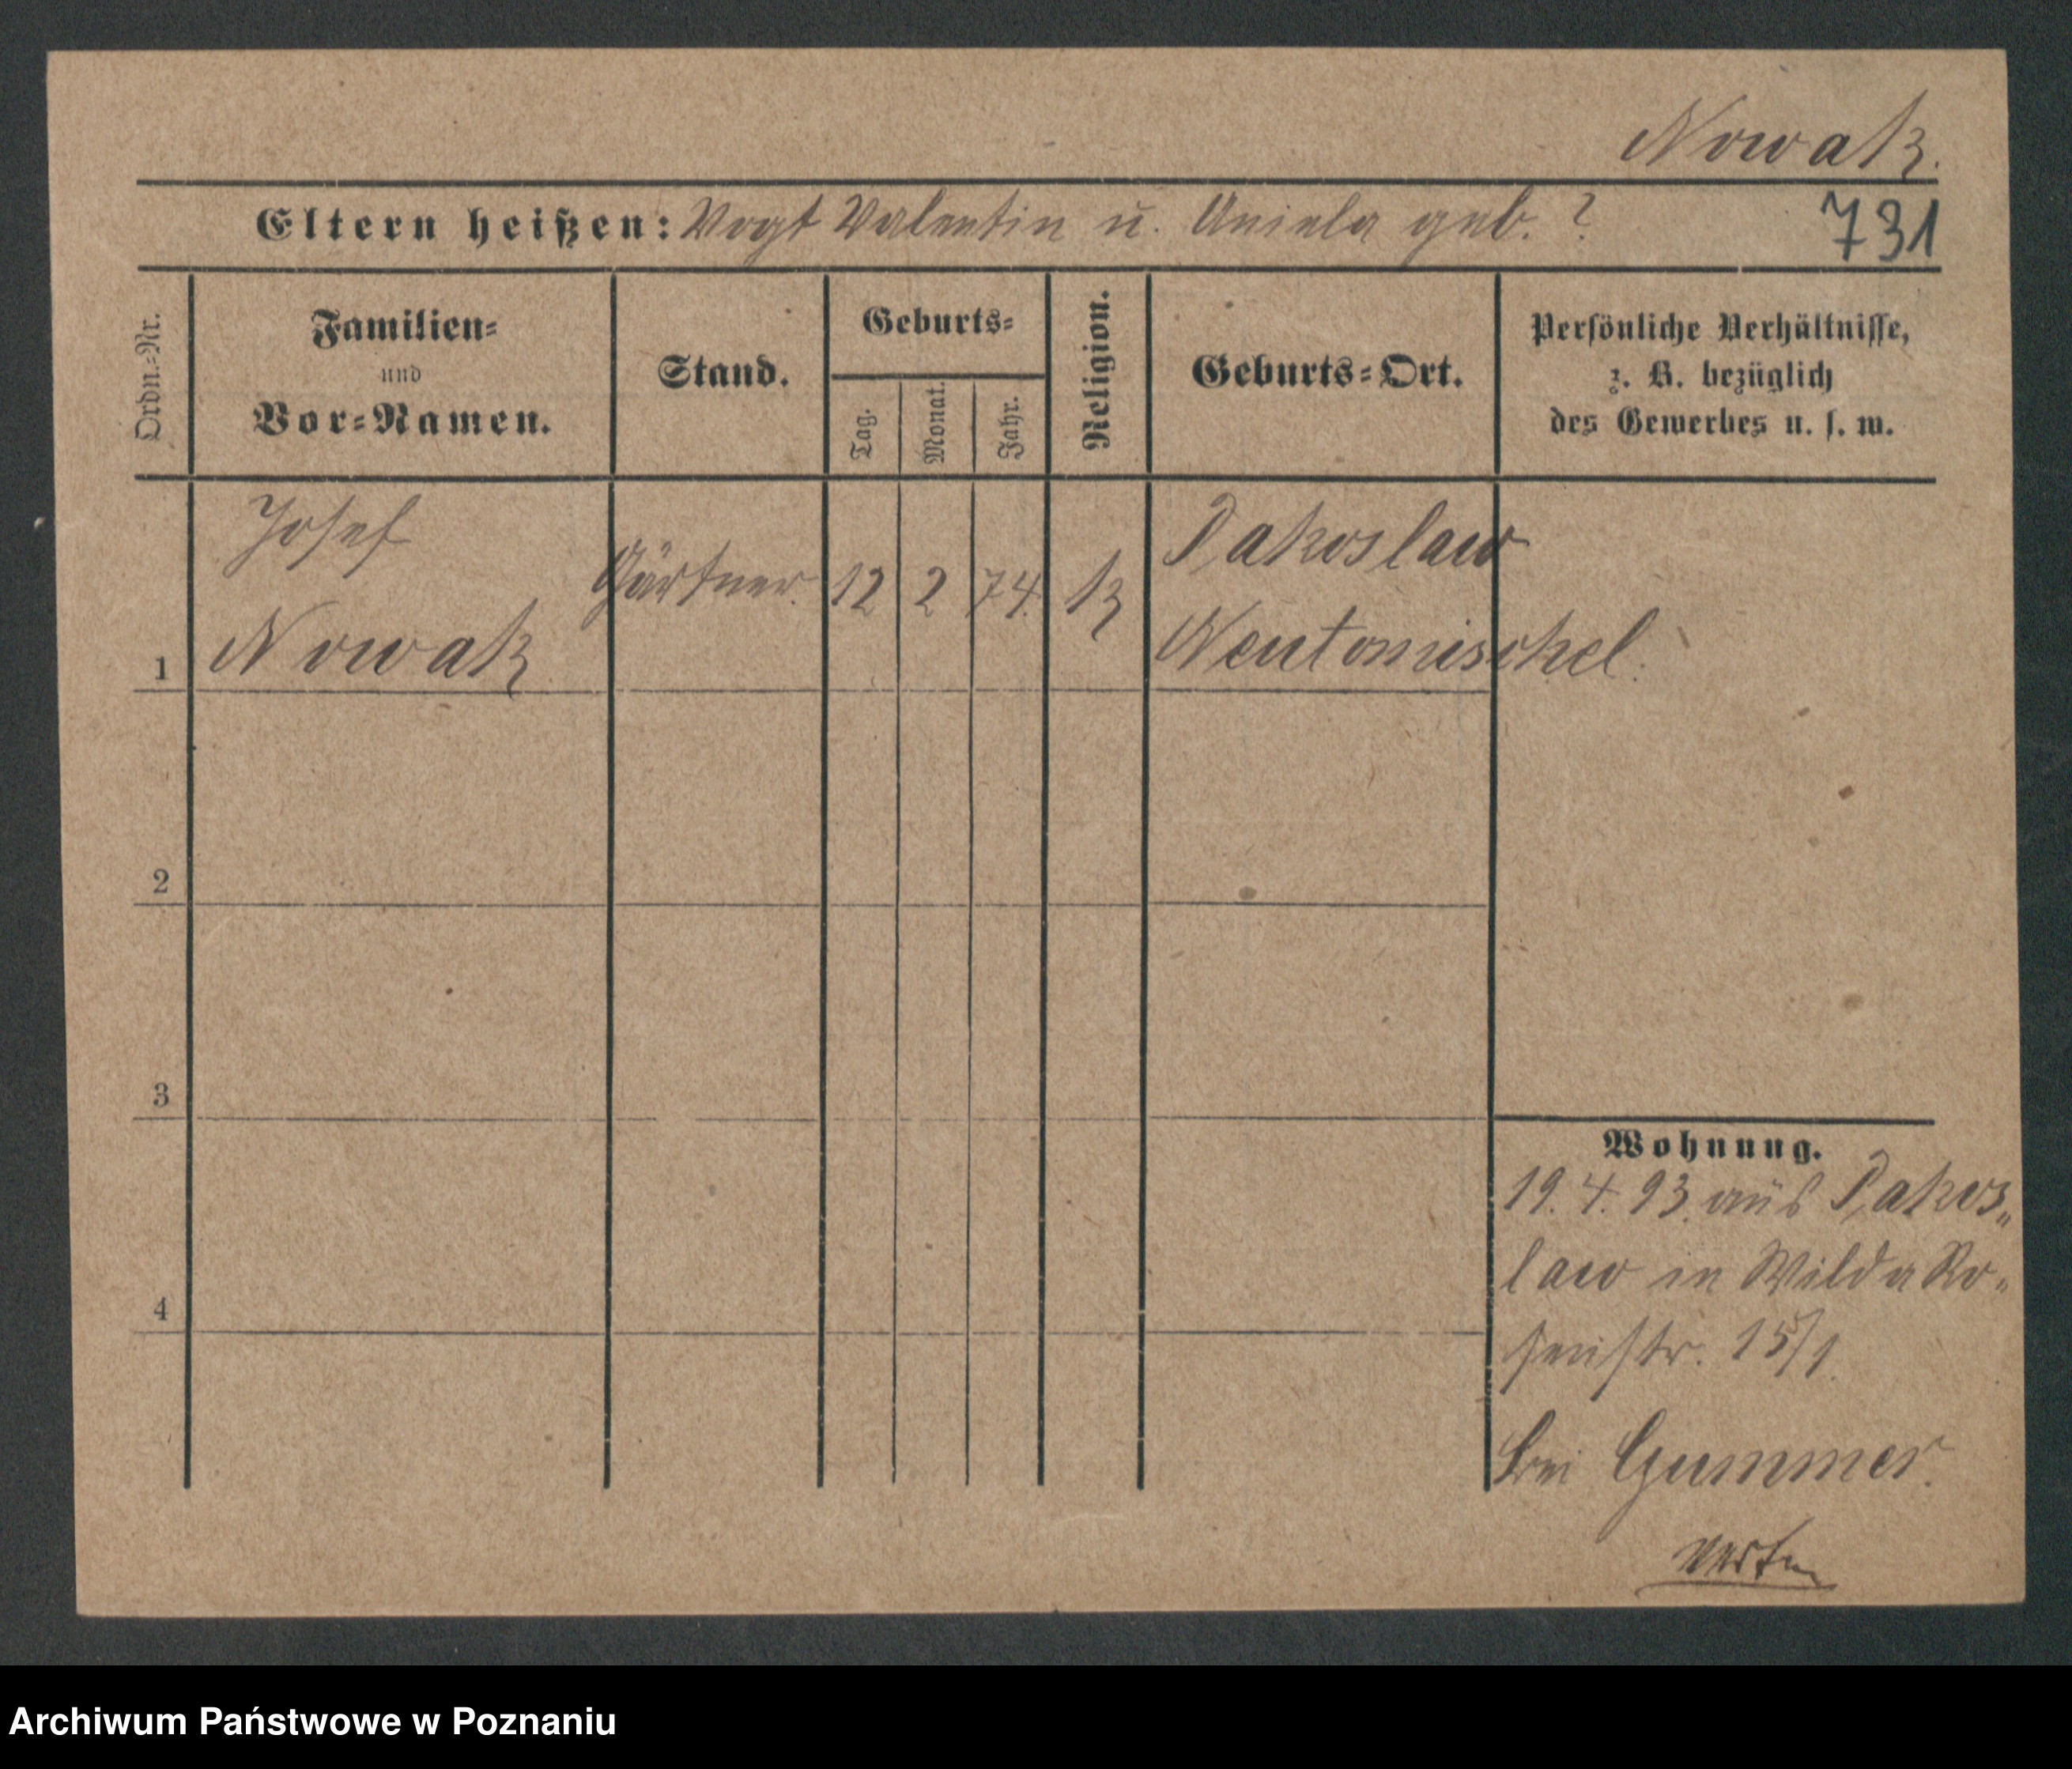 Nowak.
Eltern heißen: Vogt Valentin u. Aniela geb. ?
731
Ordn.-Nr.
Familien-
und
Vor-Namen.
Stand.
Geburts-
Tag.
Monat.
Jahr.
Religion.
Geburts-Ort.
Persönliche Verhältnisse,
z. B. bezüglich
des Gewerbes u. s. w.
1
Josef
Nowak
Gärtner.
12
2
74.
K
Pakoslaw
Neutomischel.
2
3
4
Wohnung.
19. 4. 93. aus Pakos„
law in Wilda Ro„
senstr. 15/1.
bei Gummer.
Archiwum Państwowe w Poznaniu